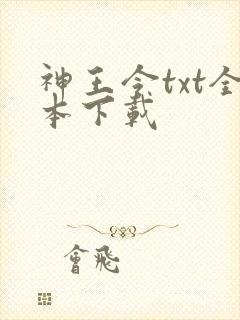 神王令txt全
本下载
會飛